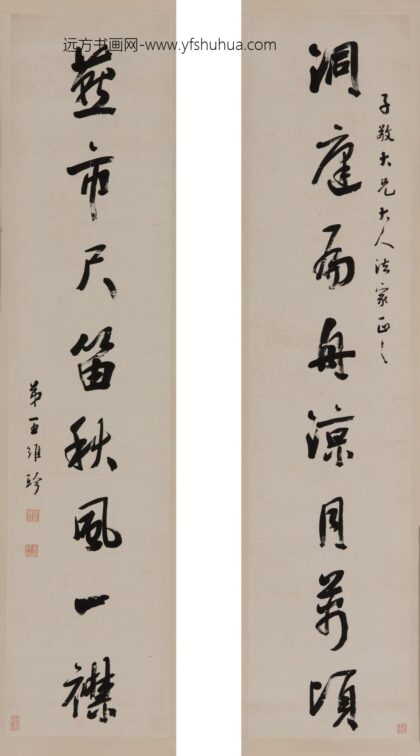 远方书画网-www.yfshuhua.com
子敬大兄大人法家正之
洞庭扁舟凉月万顷
燕市尺笛秋风一襟
弟王维珍